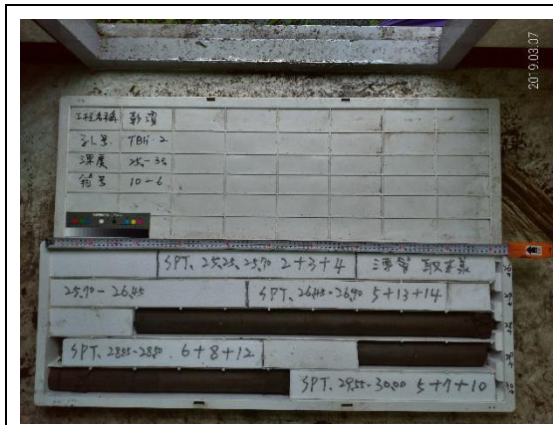 2019.03.07
工程名稱 彰濱
孔号 TBH-2
深度 25-35
箱号 10-6
SPT、25.25-25.70 2+3+4
25.70-26.45 SPT、26.45-26.90 5+13+14
SPT、28.05-28.50 6+8+12
SPT、29.55-30.00 5+7+10